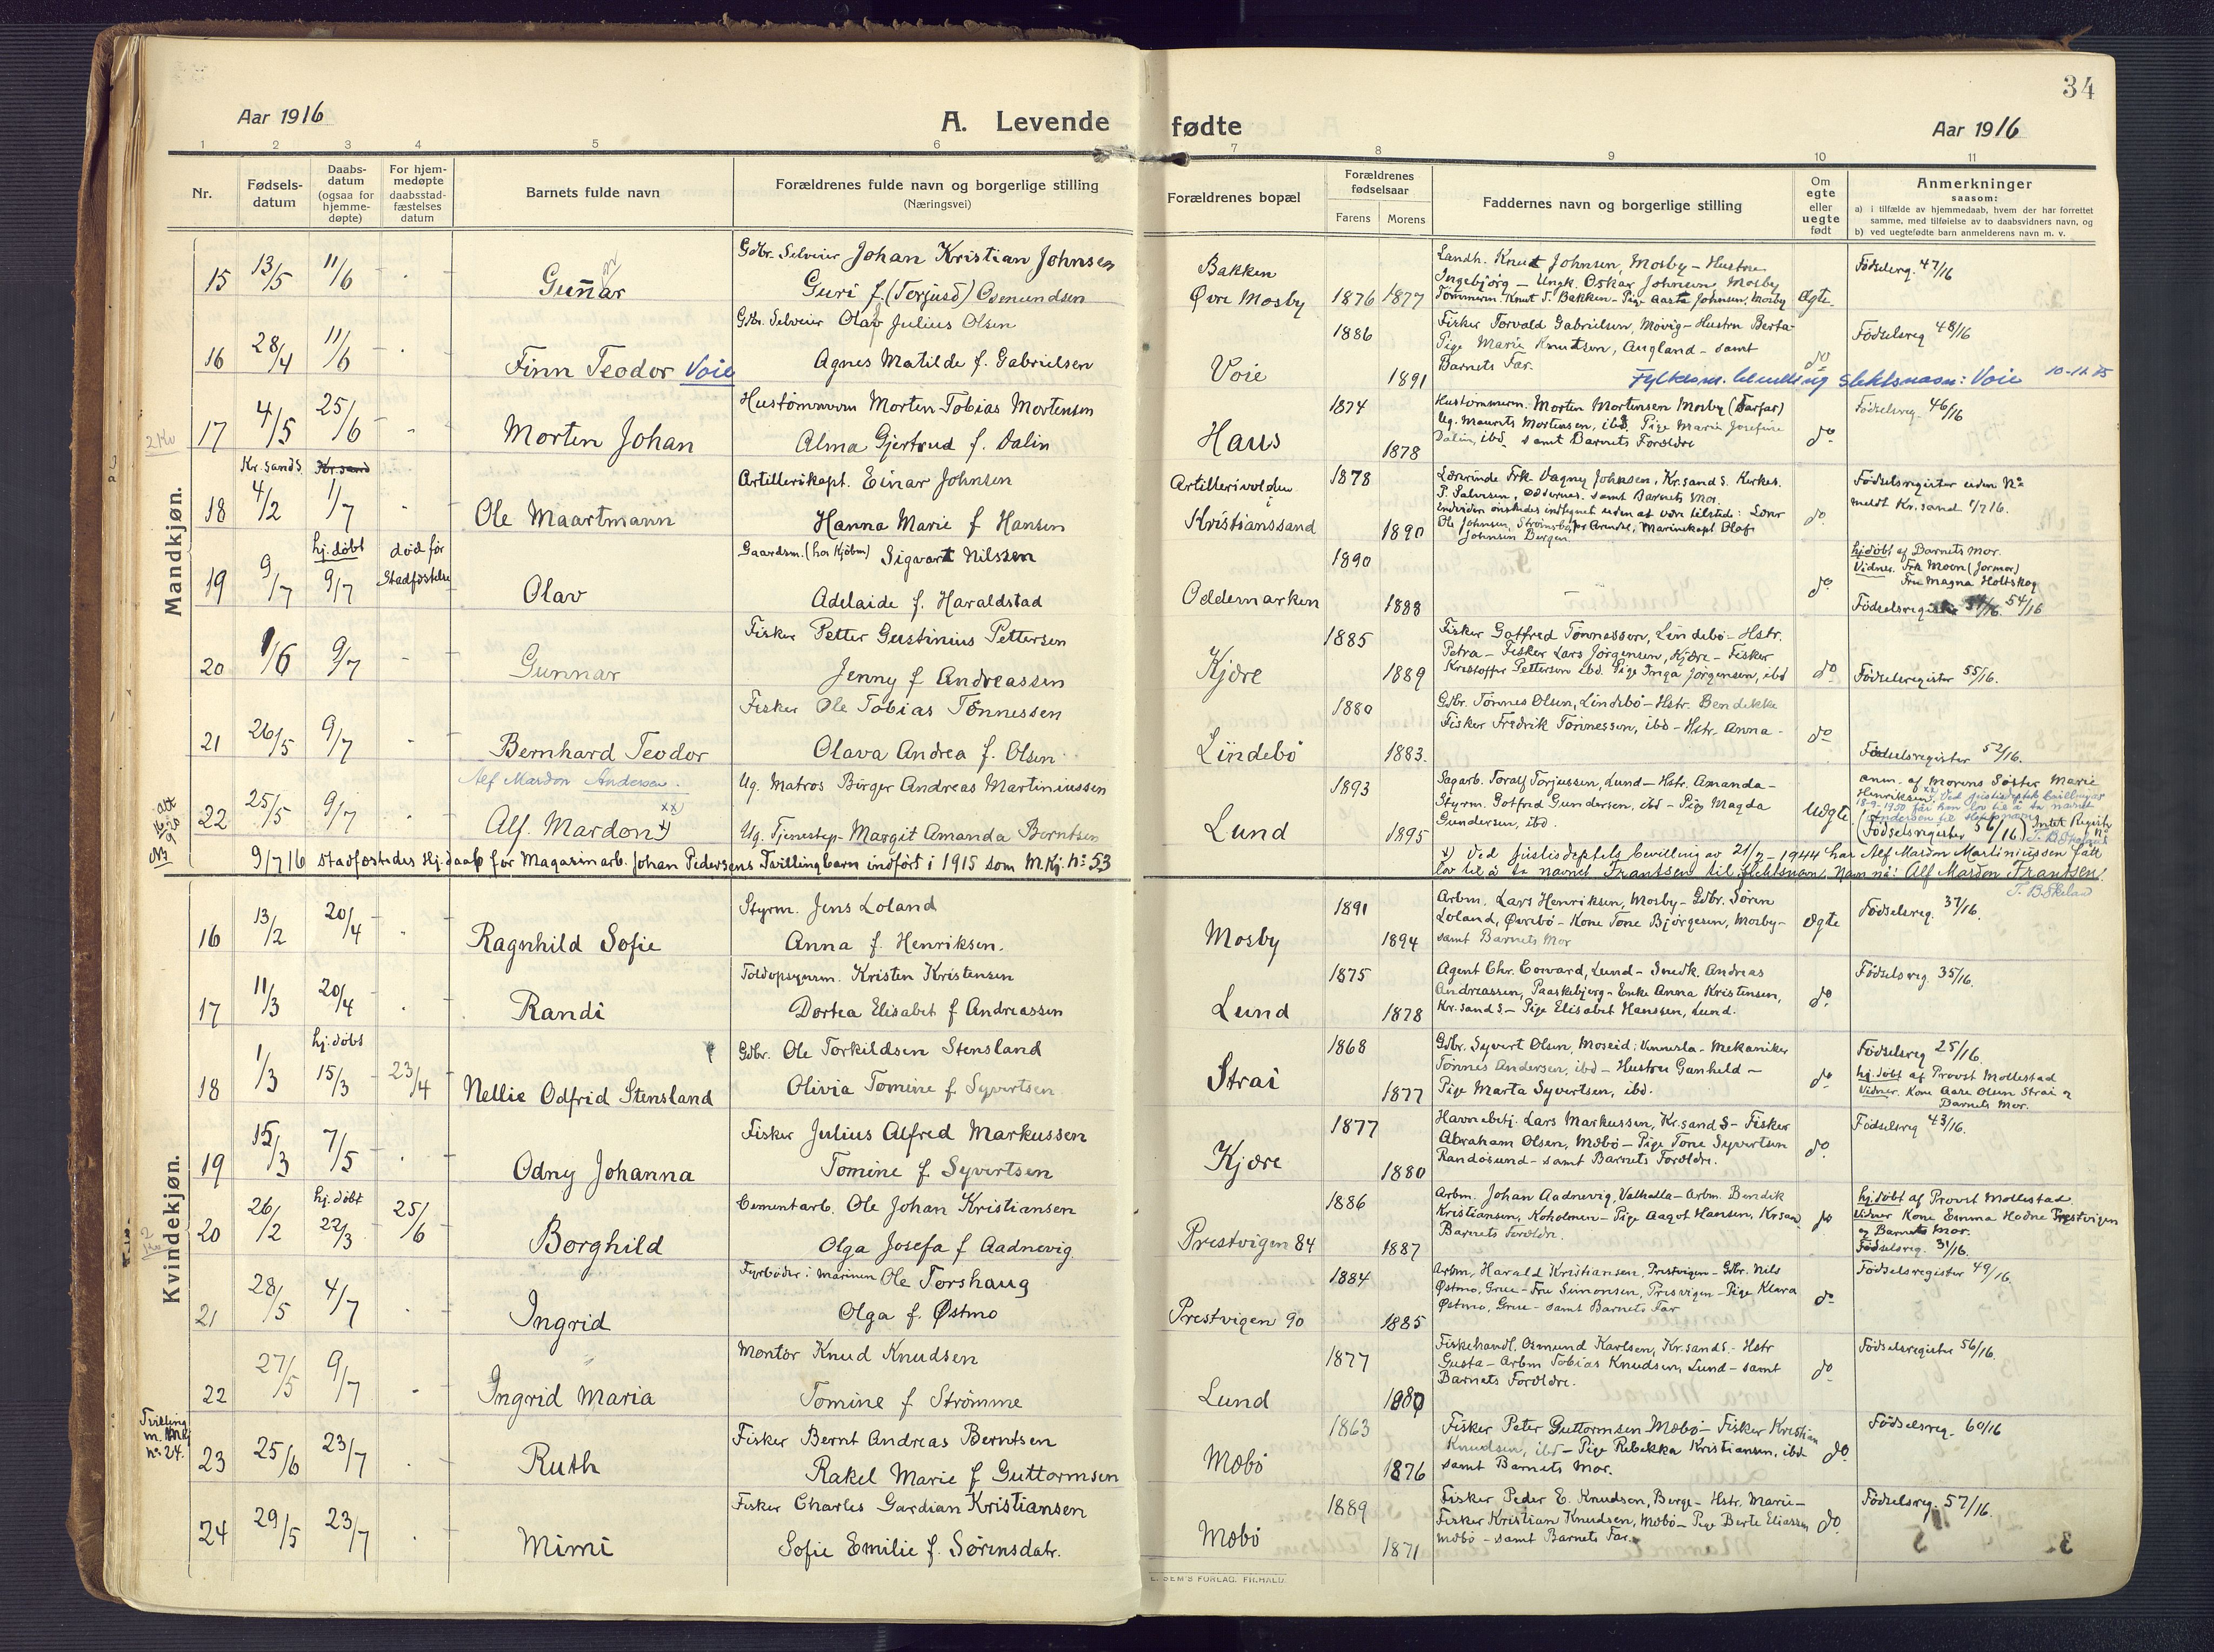 34
Aar 1916
A. Levende fødte
Aar 1916
1 2 3 4 5 6 7 8 9 10 11
Nr.
Fødsels-
datum
Daabs-
datum
(ogsaa for
hjemme-
døpte)
For hjem-
medøpte
daabsstad-
fæstelses
datum
Barnets fulde navn
Forældrenes fulde navn og borgerlige stilling
(Næringsvei)
Forældrenes bopæl
Forældrenes
fødselsaar
Farens Morens
Faddernes navn og borgerlige stilling
Om
egte
eller
uegte
født
Anmerkninger
saasom:
a) i tilfælde av hjemmedaab, hvem der har forrettet
samme, med tilføielse av to daabsvidners navn, og
b) ved uegtefødte barn anmelderens navn m. v.
Mandkjøn.
15 13/5 11/6 - Gunnar
Gdbr. Selveier Johan Kristian Johnsen
Guri f. (Terjusd) Osmundsen
Bakken
Øvre Mosby 1876 1877
Landh. Knut Johnsen, Mosby - Hustru
Ingebjørg - Ungk. Oskar Johnsen Mosby
Tømmerm. Knut T. Bakken - Pige Aasta Johnsen, Mosby
Ægte
Fødselsreg. 47/16
16 28/4 11/6 - Finn Teodor Voie
Gdbr. Selveier Olav Julius Olsen
Agnes Matilde f. Gabrielsen
Voie 1886 1891
Fisker Torvald Gabrielsen, Møvig - Hustru Berta -
Pige Marie Knutsen, Augland - samt
Barnets Far.
do
Fødselsreg 48/16
Fylkesm. bevilling slektsnavn: Voie 10-11-
17 4/5 25/6 - Morten Johan
Hustømmerm Morten Tobias Mortensen
Alma Gjertrud f. Dalin
Haus 1874 1878
Hustømmerm. Morten Mortensen Mosby (Farfar)
Ug. Maurits Mortensen, ibd. Pige Marie Josefine
Dalin, ibd. samt Barnets Forældre
do
Fødselsreg. 46/16
Kr.sands. Kr.sand
18 4/2 1/7 - Ole Maartmann
Artillerikapt. Einar Johnsen
Hanna Marie f Hansen
Artillerivolden
i
Kristianssand 1878 1890
Lærerinde Frk. Dagny Johnsen, Kr.sand S. Kirkes.
P. Salvesen, Oddernes. samt Barnets Mor.
Endvidere ønskedes indtegnet uden at være tilstede: Lærer
Ole Johnsen, Strømsbo, pr Arendal, Marinekapt Olaf
Johnsen Bergen
do.
Fødselsregister uden No
meldt Kr.sand 1/7 16.
19 9/7 hj. døbt 9/7 død før Stadfæstelse Olav
Gaardsm. (hos Kjøbm) Sigvart Nilssen
Adelaide f. Haraldstad
Oddemarken 1890 1888
-
do
hj.døbt af Barnets Mor.
Vidner. Frk Moen (Jormor)
Fru Magna Holtskog
Fødselsregister 54/16
20 1/6 9/7 - Gunnar
Fisker Petter Gustinius Pettersen
Jenny f Andreassen
Kjære 1885 1889
Fisker Gotfred Tønnessen, Lindebø - Hstr.
Petra - Fisker Lars Jørgensen, Kjære - Fisker
Kristoffer Pettersen ibd. Pige Inga Jørgensen, ibd
do
Fødselsregister 55/16.
21 26/5 9/7 - Bernhard Teodor
Fisker Ole Tobias Tønnessen
Olava Andrea f. Olsen
Lindebø 1880 1883.
Gdbr. Tønnes Olsen, Lindebø - Hstr. Bendikke
Fisker Fredrik Tønnessen, ibd - Hstr. Anna -
do
Fødselsregister 52/16.
Alf Mardon Andersen.
22 25/5 9/7 - Alf. Mardon x) xx)
Ug. Matros Birger Andreas Martiniussen
Ug. Tjenestep. Margit Amanda Berntsen
Lund 1893 1895
Sagarb. Toralf Torjussen, Lund - Hstr. Amanda -
Styrm. Gotfred Gundersen, ibd - Pige Magda
Gundersen, ibd.
Uægte
anm. af Morens Søster Marie
Henriksen. xx) Ved justisdeptets bevilling av
18-9-1950 får han lov til å ta navnet
Andersen til slektsnavn
(Fødselsregister 56/16)
9/7 16 stadfæstedes hj.daab for Magasinarb. Johan Pedersens Tvillingbarn indført i 1915 som M.Kj. No 53
x) Ved justisdeptets bevilling av 21/2 - 1944 har Alf Mardon Martiniussen fått
lov til å ta navnet Frantsen til slektsnavn. Navn nå: Alf Mardon Frantsen.
Kvindekjøn.
16 13/2 20/4 - Ragnhild Sofie
Styrm. Jens Loland
Anna f. Henriksen.
Mosby 1891 1894
Arbm. Lars Henriksen, Mosby - Gdbr. Søren
Loland, Øvrebø - Kone Tone Bjørgesen, Mosby -
samt Barnets Mor
ægte
Fødselsreg. 37/16.
17 11/3 20/4 - Randi
Toldopsynsm. Kristen Kristensen
Dortea Elisabet f Andreassen
Lund 1875 1878
Agent Chr. Coward, Lund - Snedk. Andreas
Andreassen, Paaskebjerg - Enke Anna Kristensen,
Kr.sand S. - Pige Elisabet Hanssen, Lund.
do.
Fødselsreg 35/16.
18 1/3 hj. døbt 15/3 23/4 Nellie Odfrid Stensland
Gdbr. Ole Torkildsen Stensland
Olivia Tomine f Syvertsen
Strai 1868 1877
Gdbr. Syvert Olsen, Moseid i Vennesla - Mekaniker
Tønnes Andersen, ibd - Hustru Gunhild -
Pige Marta Syvertsen, ibd.
do
Fødselsreg 25/16.
hj. døbt af Provst Mollestad
Vidner. Kone Aase Olsen Strai og
Barnets Mor.
19 15/3 7/5 - Odny Johanna
Fisker Julius Alfred Markussen
Tomine f Syvertsen
Kjære 1877 1880
Havnebetj. Lars Markussen, Kr.sand S - Fisker
Abraham Olsen, Mæbø - Pige Tone Syvertsen
Randøsund - samt Barnets Forældre.
do.
Fødselsreg 43/16.
20 26/2 hj. døbt 22/3 25/6 Borghild
Cementarb. Ole Johan Kristiansen
Olga Josefa f Aadnevig
Prestvigen 84 1886 1887
Arbm. Johan Aadnevig, Valhalla - Arbm. Bendik
Kristiansen, Koholmen - Pige Aagot Hansen, Krsan
Barnets Forældre.
do
hj. døbt af Provst Mollestad
vidner Kone Emma Hodne Prestvigen
og Barnets Mor.
Fødselsreg. 31/16.
21 28/5 4/7 - Ingrid
Fyrbøder i Marinen Ole Torshaug
Olga f. Østmo
Prestvigen 90 1884 1885
Arbm. Harald Kristiansen, Prestvigen - Gdbr. Nils
Østmo, Grue - Fru Simonsen, Presvigen - Pige Klara
Østmo, Grue - samt Barnets Far
do
Fødselsregister 49/16.
22 27/5 9/7 - Ingrid Maria
Montør Knud Knudsen
Tomine f Strømme
Lund 1877 1880
Fiskehandl. Osmund Karlsen, Kr.sand S. - Hstr
Gusta - Arbm Tobias Knudsen, Lund - samt
Barnets Forældre.
do
Fødselsregister 56/16.
Tvilling
m.
no 24.
23 25/6 23/7 - Ruth
Fisker Bernt Andreas Berntsen
Rakel Marie f Guttormsen
Mæbø 1863 1876
Fisker Peter Guttormsen Mæbø - Fisker Kristian
Knudsen, ibd - Pige Rebekka Kristiansen, ibd
samt Barnets Mor.
do
Fødselsreg. 60/16
24 29/5 23/7 - Mimi
Fisker Charles Gardian Kristiansen
Sofie Emilie f. Sørensdatr.
Mæbø 1889 1871
Fisker Peder E. Knudsen, Berge - Hstr. Marie -
Fisker Kristian Knudsen, Mæbø - Pige Berte Eliassen
Mæbø - samt Barnets Far.
do.
Fødselsreg. 57/16.
E. SEM'S FORLAG. FR.HALD.